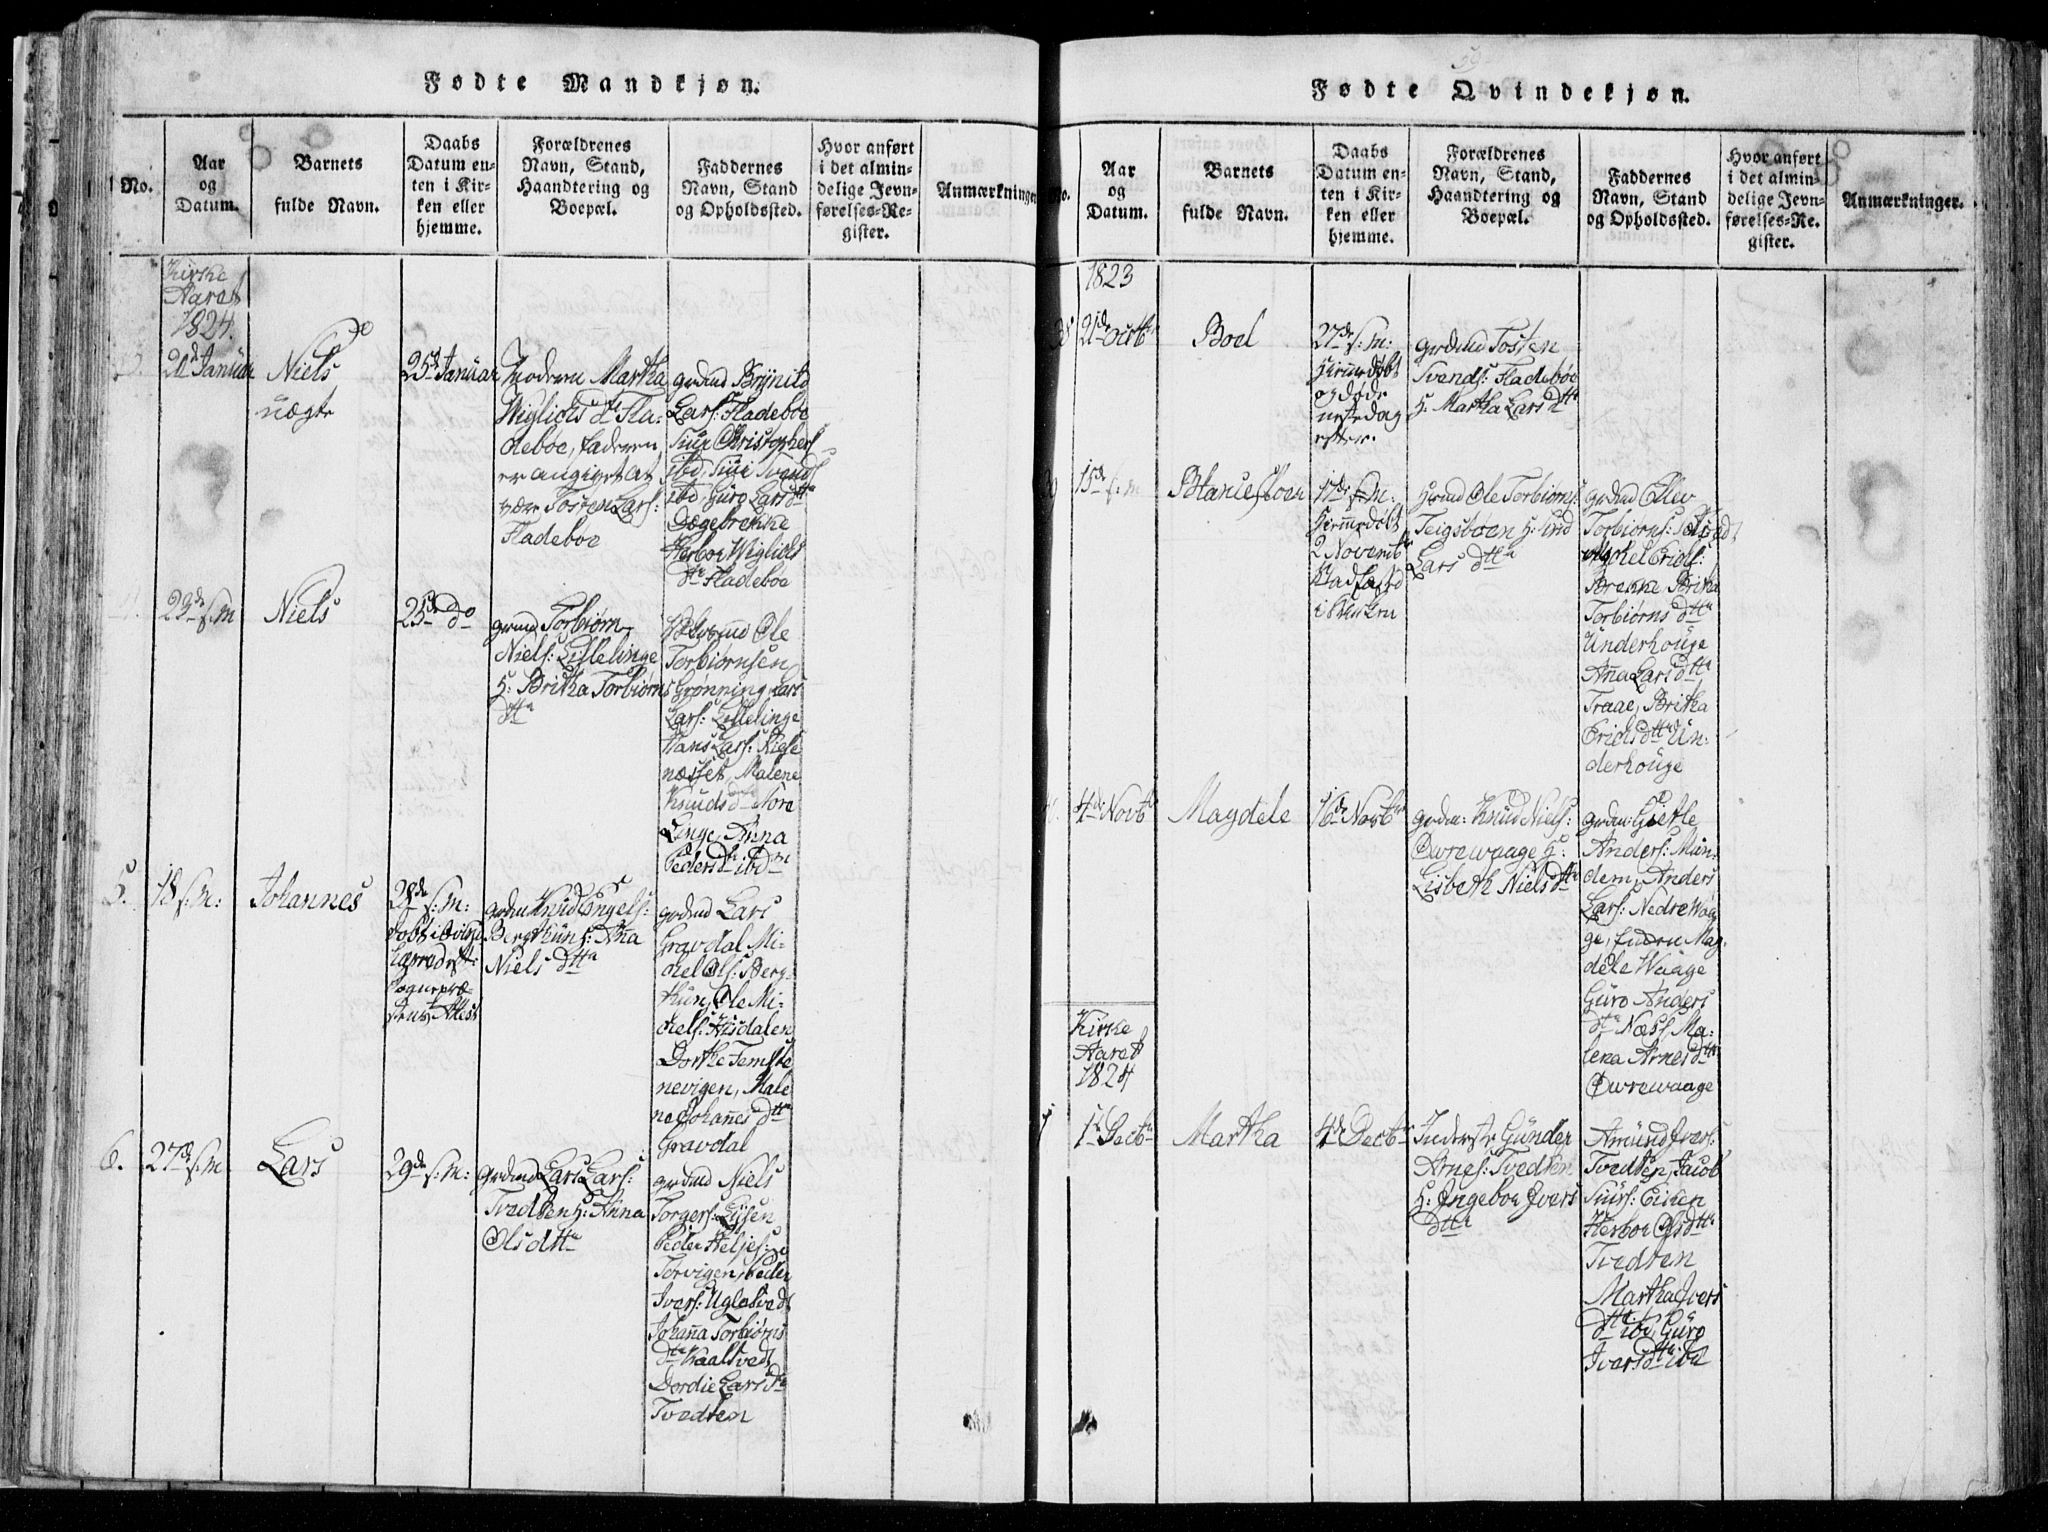 Fødte Mandkjøn.
No.
Aar
og
Datum.
Barnets
fulde Navn.
Daabs
Datum en-
ten i Kir-
ken eller
hjemme.
Forældrenes
Navn, Stand,
Haandtering og
Boepæl.
Faddernes
Navn, Stand
og Opholdssted.
Hvor anført
i det almin-
delige Jevn-
førelses-Re-
gister.
Anmærkninger
Kirke
Aaret
1824.
Januar
Niels
uægte
25de Januar
Moderen Martha
Wiglichs dtr Fla-
deboe, faderen
er angivet at
være Tosten Lars:
Fladeboe
grdmd Brÿnild
Lars: Fladeboe
Siur Christophers
ibd, Siüi Svends
ibd, Guro Lars dtta
Døgebrekke
Herboe Wiglichs
dtr Fladeboe
23de s: m
Niels
25de do
grmd Torbiørn
Niels: Lillelinge
H: Britha Torbiørns
dtta
Ole
Torbiørnsen
Grønning, Lars
Lars: Lillelinge
Hans Lars:
næsset, Malene
Knuds dtr Nore
Linge, Anna
Peders dtr ibdm
5.
18 s: m:
Johannes
28de s: m:
døbt i Evind
grdm Knud Engels:
Bergthun H: Anna
Niels dtta
grdmd Lars
Gravdal Mi-
chel Ols: Berg-
thun, Ole Mi-
chels: Aasdalen
Dorthe Femste
nevigen, Male
ne Johannes dtta
Gravdal
6.
27de s: m
Lars
29de s: m:
grdmd Lars Lars:
Tvedten H: Anna
Ols dtta
grdmd Niels
Torgers: Eÿsen
Peder Heljes:
Torvigen, Peder
Ivers: Uglatvedt
Johanna Torbiørns
dtr Kaaltvedt
Dordie Lars dtr
Tvedten
59
Fødte Qvindekjøn.
No.
Aar
og
Datum.
Barnets
fulde Navn.
Daabs
Datum en-
ten i Kir-
ken eller
hjemme.
Forældrenes
Navn, Stand,
Haandtering og
Boepæl.
Faddernes
Navn, Stand
og Opholdssted.
Hvor anført
i det almin-
delige Jevn-
førelses-Re-
gister.
Anmærkninger.
1823
38
21de Octbr
Boel
27de s: m:
hiemmedøbt
og døde
neste dag
efter.
grdmd Tosten
Svends: Fladeboe
H: Martha Lars dtta
15de s: m
17de s: m:
hiemmedøbt
2 Novembr
Stadfæstd
i Kirken
Ole Torbiørns:
Teigsbøen H:
Lars dtta
grdmd Ellev
Torbiorns:
Mickel Erichs:
Brekke Britha
Torbiørns dtta
Underhouge
Anna Lars dtta
Traae, Britha
Erichs dtta Un-
derhouge
4de Novbr
Magdele
16de Novbr
grdm: Knud Niels:
Øwrewaage H:
Lisbeth Niels dtta
grdm: Gietle
Anders: Mun-
dem, Anders
Lars: Nedre Waa-
ge, Enken Mag-
dele Waage
Guro Anders
dtr Næss Ma-
lena Arnes dtta
Øwrewaage
Kirke
Aaret
1824
1
1st Decbr
Martha
4de Decbr
Inderste Günder
Arnes: Tvedten
H: Ingeboe Ivers
dtta
Amund Ivers:
Tvedten, Jacob
Siurs: Eichen
Herboe Ols dtta
Tvedten
Martha Ivers
dtta ibd, Guro
Ivers dtta ibd